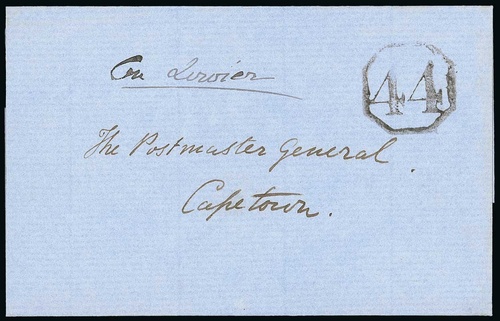 On Service
44
The Postmaster General
Capetown.